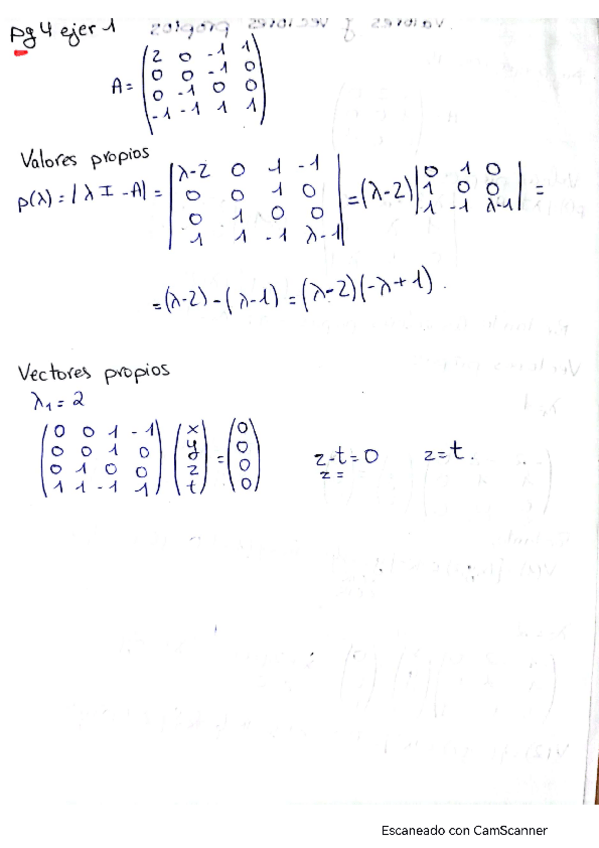 pg 4 ejer 1
A= (2 0 -1 1
0 0 -1 0
0 -1 0 0
-1 -1 1 1)
Valores propios
p(λ)=|λI-A|= |λ-2 0 1 -1
0 0 1 0
0 1 0 0
1 1 -1 λ-1| =(λ-2) |0 1 0
1 0 0
1 -1 λ-1| =
=(λ-2)-(λ-1)=(λ-2)(-λ+1).
Vectores propios
λ₁=2
(0 0 1 -1
0 0 1 0
0 1 0 0
1 1 -1 1) (x
y
z
t) = (0
0
0
0)
z-t=0 z=t.
z=
Escaneado con CamScanner